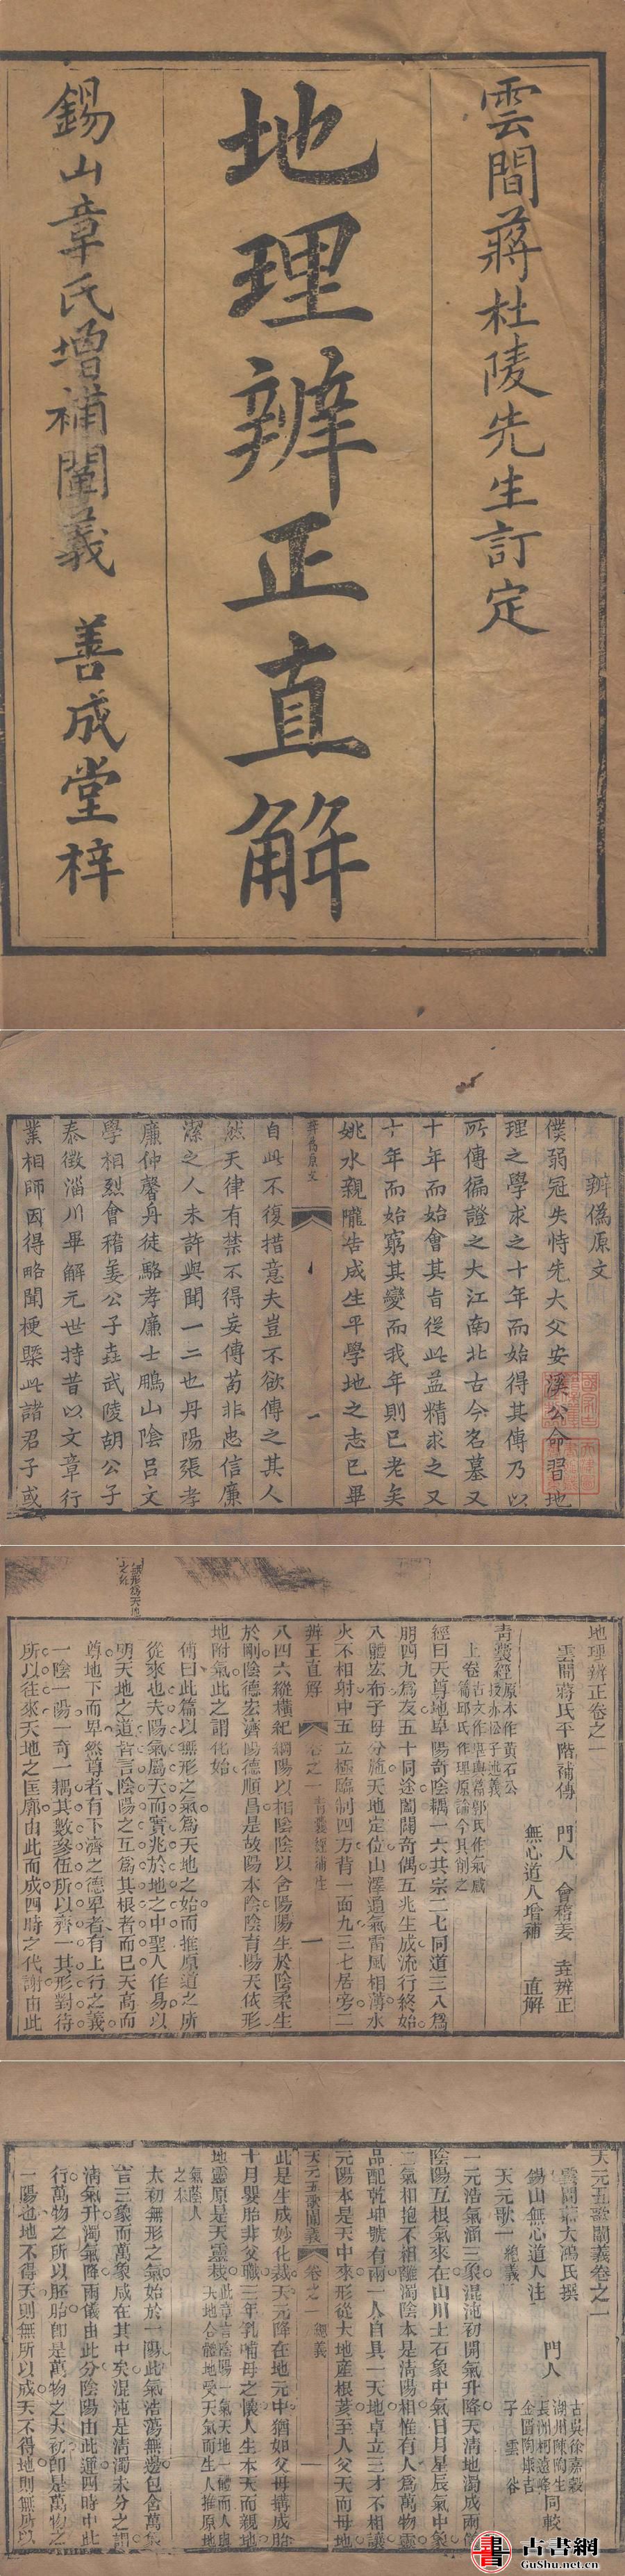 雲間蔣杜陵先生訂定
地理辨正直解
錫山章氏增補闡義　善成堂梓
辨偽原文
僕弱冠失恃先大父安溪公命習地
理之學求之十年而始得其傳乃以
所傳徧證之大江南北古今名墓又
十年而始會其旨從此益精求之又
十年而始窮其變而我年則已老矣
姚水親隴告成生平學地之志已畢
辨偽原文　一
自此不復措意夫豈不欲傳之其人
然天律有禁不得妄傳苟非忠信廉
潔之人未許與聞一二也丹陽張孝
廉仲馨丹徒駱孝廉士鵬山陰呂文
學相烈會稽姜公子垚武陵胡公子
泰徵淄川畢解元世持昔以文章行
業相師因得略聞梗槩此諸君子或
地理辨正卷之一
雲間蔣氏平階補傳　門人　會稽姜　垚辨正
無心道人增補　直解
青囊經
上卷
經曰天尊地卑陽奇陰耦一六共宗二七同道三八爲
朋四九爲友五十同途闔闢奇偶五兆生成流行終始
八體宏布子母分施天地定位山澤通氣雷風相薄水
火不相射中五立極臨制四方背一面九三七居旁二
辨正直解　卷之一　青囊經
八四六縱橫紀綱陽以相陰陰以含陽陽生於陰柔生
於剛陰德宏濟陽德順昌是故陽本陰陰育陽天依形
地附氣此之謂化始
傳曰此篇以無形之氣爲天地之始而推原道之所
從來也夫陽氣屬天而實兆於地之中聖人作易以
明天地之道皆言陰陽之互爲其根者而已天高而
尊地下而卑然尊者有下濟之德卑者有上行之義
一陰一陽一奇一耦其數參伍所以齊一其形對待
所以往來天地之匡廓由此而成四時之代謝由此
天元五歌闡義卷之一
雲間蔣大鴻氏撰
錫山無心道人注　門人
古吳徐嘉穀
湖州陳陶生
同較
子　雲谷
天元歌一　總義
一元浩氣涵三象混沌初開氣升降天清地濁成兩儀
陰陽互根氣來在山川土石象中氣日月星辰氣中象
二氣相抱不相離濁陰本是清陽相惟有人爲萬物靈
品配乾坤號有兩一人自具一天地卓立三才不相讓
元陽本是天中來形從大地產根荄至人父天而母地
天元五歌闡義　卷之一　總義
此是生成妙化裁天元降在地元中猶如父母搆成胎
十月嬰胎非父職三年乳哺母之懷人生本天而親地
地靈原是天靈栽
太初無形之氣始於一陽此氣浩蕩無邊包含萬象
言三象而萬象咸在其中矣混沌是清濁未分之謂
清氣升濁氣降兩儀由此分陰陽由此運四時由此
行萬物之所以胚胎即是萬物之太初即是萬物之
一陽也地不得天則無所以成天不得地則無所以
古書網
GuShu.net.cn